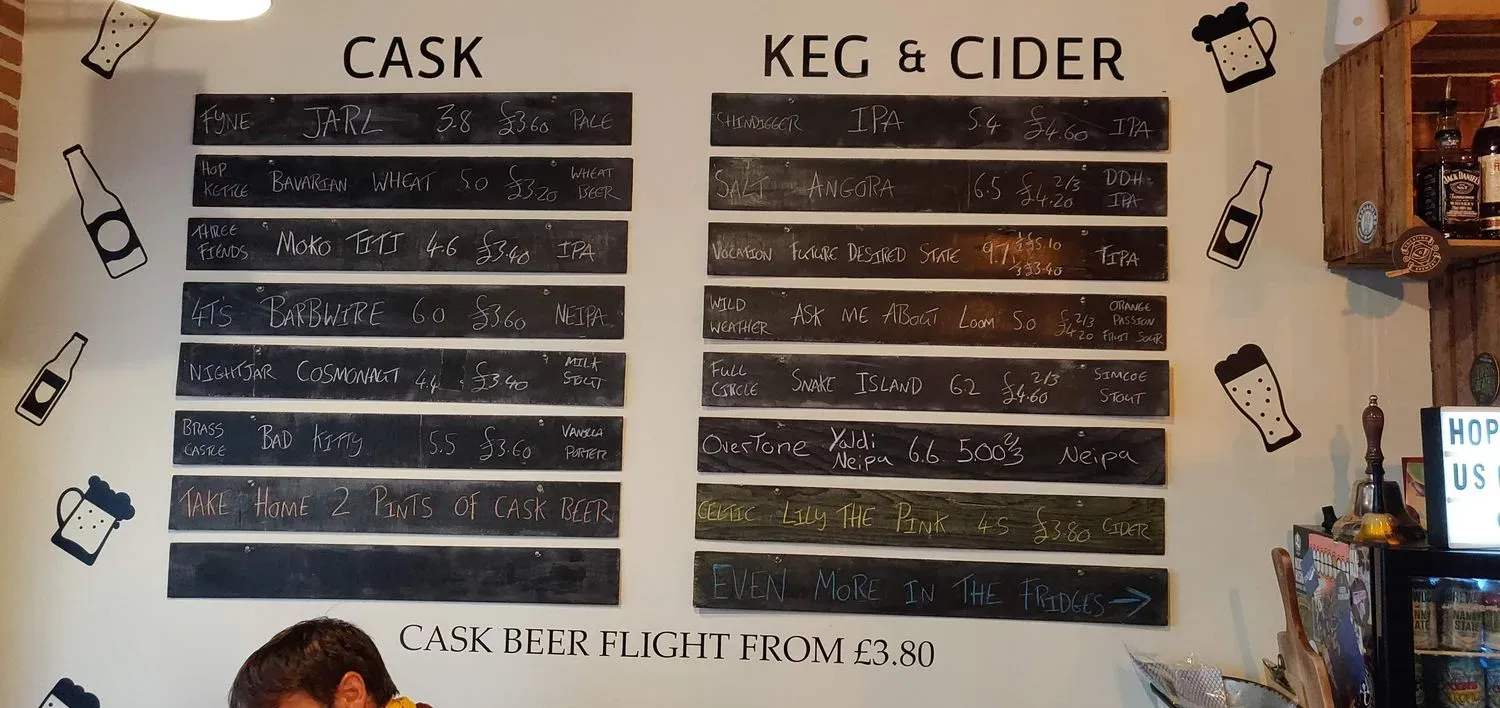 CASK
FYNE JARL 3.8 £3.60 PALE
HOP KETTLE BAVARIAN WHEAT 5.0 £3.20 WHEAT BEER
THREE FIENDS MOKO TITI 4.6 £3.40 IPA
4T'S BARBWIRE 6.0 £3.60 NEIPA
NIGHTJAR COSMONAUT 4.4 £3.40 MILK STOUT
BRASS CASTLE BAD KITTY 5.5 £3.60 VANILLA PORTER
TAKE HOME 2 PINTS OF CASK BEER
KEG & CIDER
SHINDIGGER IPA 5.4 £4.60 IPA
SALT ANGORA 6.5 £4.20 2/3 DDH IPA
VOCATION FUTURE DESIRED STATE 9.7 £5.10 £3.40 TIPA
WILD WEATHER ASK ME ABOUT LOOM 5.0 £4.20 2/3 ORANGE PASSION FRUIT SOUR
FULL CIRCLE SNAKE ISLAND 6.2 £4.60 2/3 SIMCOE STOUT
OverTone Yaldi Neipa 6.6 5.00 2/3 Neipa
CELTIC LILY THE PINK 4.5 £3.80 CIDER
EVEN MORE IN THE FRIDGES →
CASK BEER FLIGHT FROM £3.80
JACK DANIEL'S
HOP
US